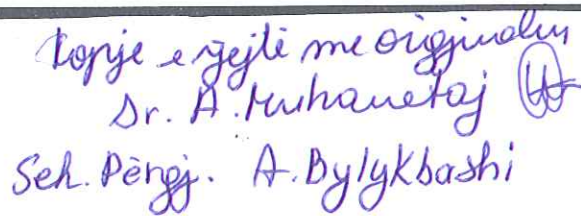 Kopje e njejtë me origjinalin
Dr. A. Muhametaj
Sek. Përgj. A. Bylykbashi